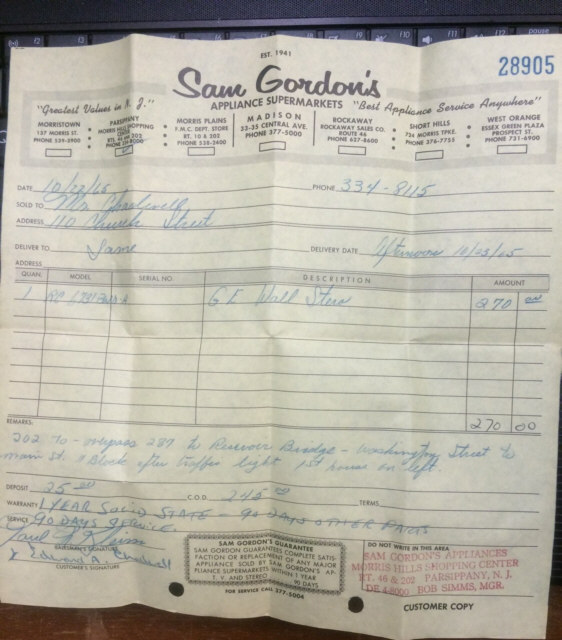 EST. 1941
28905
Sam Gordon's
"Greatest Values in N. J." APPLIANCE SUPERMARKETS "Best Appliance Service Anywhere"
MORRISTOWN
137 MORRIS ST.
PHONE 539-3900
PARSIPPANY
MORRIS HILLS SHOPPING
CENTER
RTS. 46 AND 202
MORRIS PLAINS
F.M.C. DEPT. STORE
RT. 10 & 202
PHONE 538-3400
MADISON
33-35 CENTRAL AVE.
PHONE 377-5000
ROCKAWAY
ROCKAWAY SALES CO.
ROUTE 46
PHONE 627-8600
SHORT HILLS
724 MORRIS TPKE.
PHONE 376-7755
WEST ORANGE
ESSEX GREEN PLAZA
PROSPECT ST.
PHONE 731-6900
DATE 10/22/65 PHONE 334-8115
SOLD TO Mr.
ADDRESS 110 Church Street
DELIVER TO Same DELIVERY DATE Afternoon 10/23/65
ADDRESS
QUAN. MODEL SERIAL NO. DESCRIPTION AMOUNT
1 GE Wall Stereo 270 00
REMARKS: 270 00
202 To - overpass 287 to Bridge - Washington Street to
main St. Block after traffic light 1st house on left.
DEPOSIT 25.00 C.O.D. 245.00 TERMS
WARRANTY 1 YEAR Solid STATE - 90 DAYS OTHER PARTS
SERVICE 90 DAYS Service
SALESMAN'S SIGNATURE
x Edward A.
CUSTOMER'S SIGNATURE
SAM GORDON'S GUARANTEE
SAM GORDON GUARANTEES COMPLETE SATIS-
FACTION OR REPLACEMENT OF ANY MAJOR
APPLIANCE SOLD BY SAM GORDON'S AP-
PLIANCE SUPERMARKETS WITHIN 1 YEAR
T. V. AND STEREO 90 DAYS
FOR SERVICE CALL 377-5004
DO NOT WRITE IN THIS AREA
SAM GORDON'S APPLIANCES
MORRIS HILLS SHOPPING CENTER
RT. 46 & 202 PARSIPPANY, N. J.
DE 4-8000 BOB SIMMS, MGR.
CUSTOMER COPY